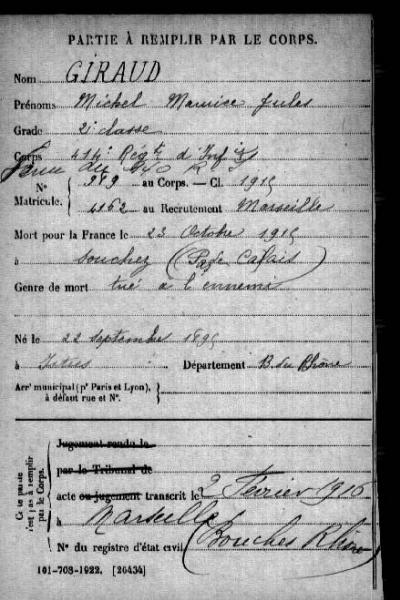 PARTIE À REMPLIR PAR LE CORPS.
Nom GIRAUD
Prénoms Michel Maurice Jules
Grade 2e classe
Corps 414e Régt d'Infie
Venu du 140 R I
N° Matricule. 989 au Corps. — Cl. 1915
4162 au Recrutement Marseille
Mort pour la France le 23 Octobre 1915
à Souchez (Pas de Calais)
Genre de mort tué à l'ennemi
Né le 22 septembre 1895
à Istres Département B. du Rhône
Arrt municipal (pr Paris et Lyon), à défaut rue et N°.
Ce te partie n'est pas à remplir par le Corps.
Jugement rendu le
par le Tribunal de
acte ou jugement transcrit le 2 Février 1916
à Marseille
N° du registre d'état civil (Bouches Rhône)
101-708-1922. [26434]